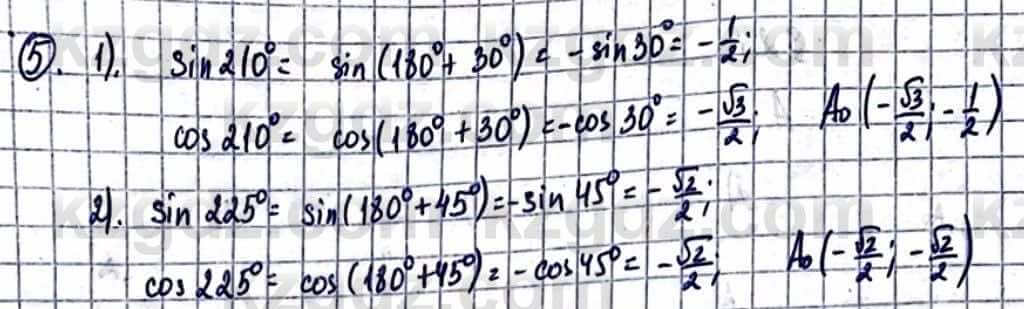 5. 1). sin 210° = sin (180° + 30°) = - sin 30° = - 1/2;
cos 210° = cos (180° + 30°) = - cos 30° = - √3/2; A₀ (- √3/2; - 1/2)
2). sin 225° = sin (180° + 45°) = - sin 45° = - √2/2;
cos 225° = cos (180° + 45°) = - cos 45° = - √2/2; A₀ (- √2/2; - √2/2)